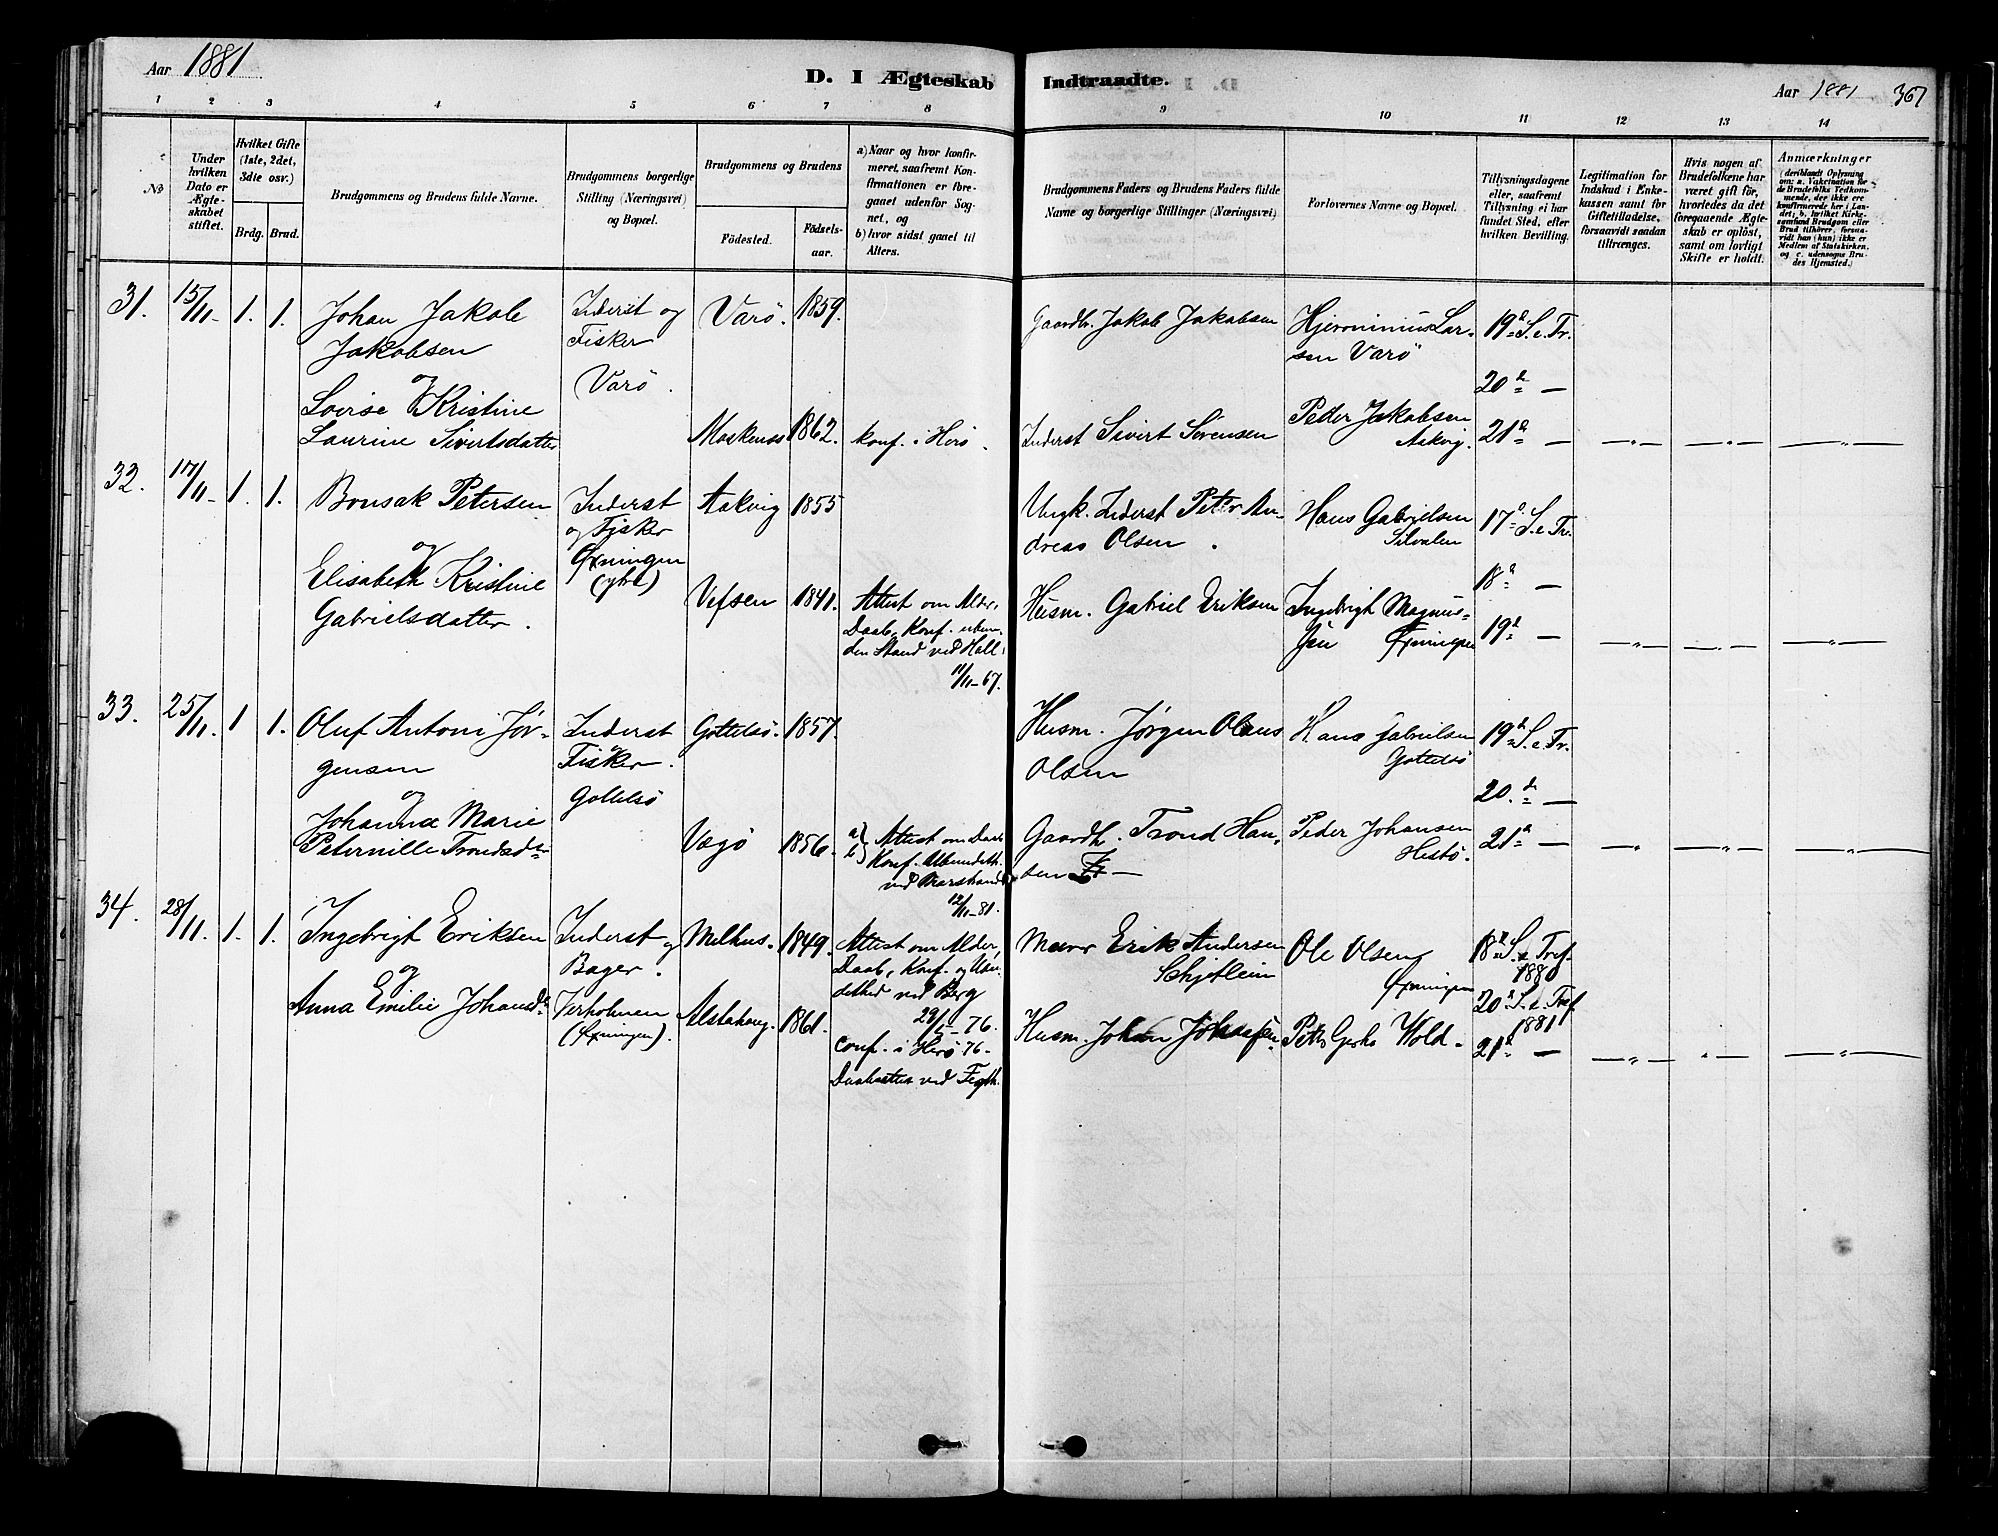 Aar 1881
D. I Ægteskab Indtraadte.
Aar 1881 367
1 2 3 4 5 6 7 8 9 10 11 12 13 14
No
Under hvilken Dato er Ægteskabet stiftet.
Hvilket Gifte (1ste, 2det, 3die osv.)
Brdg. Brud.
Brudgommens og Brudens fulde Navne.
Brudgommens borgerlige Stilling (Næringsvei) og Bopæl.
Brudgommens og Brudens
Födested.
Födselsaar.
a) Naar og hvor konfirmeret, saafremt Konfirmationen er foregaaet udenfor Sognet, og
b) hvor sidst gaaet til Alters.
Brudgommens Faders og Brudens Faders fulde Navne og borgerlige Stillinger (Næringsvei)
Forlovernes Navne og Bopæl.
Tillysningsdagene eller, saafremt Tillysning ei har fundet Sted, efter hvilken Bevilling.
Legitimation for Indskud i Enkekassen samt for Giftetilladelse, forsaavidt saadan tiltrænges.
Hvis nogen af Brudefolkene har været gift før, hvorledes da det foregaaende Ægteskab er oplöst, samt om lovligt Skifte er holdt.
Anmærkninger (deriblandt Oplysning om: a. Vaccination for de Brudefolks Vedkommende, der ikke ere konfirmerede her i Landet; b. hvilket Kirkesamfund Brudgom eller Brud tilhörer, forsaavidt han (hun) ikke er Medlem af Statskirken, og c. udensogns Brudes Hjemsted.)
31. 15/11. 1. 1. Johan Jakob Jakobsen
og
Lovise Kristine Laurine Sivertsdatter
Inderst og Fisker Varö.
Varö. 1859.
Moskenes 1862. konf. i Herö.
Gaardbr. Jakob Jakobsen
Inderst Sivert Sörensen
Hjeronimus Larsen Varö
Peder Jakobsen Aakvig.
19d S. e. Tr.
20d —
21d — —„— —„— —„—
32. 17/11 1. 1. Bonsak Petersen
og
Elisabeth Kristine Gabrielsdatter.
Inderst og Fisker Øxningen (ytre)
Aakvig 1855
Vefsen 1841. Attest om Alder, Daab, Konf. ved Hall. 11/11-67.
Ungk. Inderst Peter Andreas Olsen.
Husm. Gabriel Eriksen
Hans Gabrielsen Silvalen
Ingebrigt Magnus- Øxningen
17d S. e. Tr.
18d —
19d — —„— —„— —„—
33. 25/11. 1 1. Oluf Antoni Jørgensen
og
Johanna Marie Peternille Trondsd.
Inderst Fisker. Gottelsö
Gottelsö. 1857.
Vegö 1856. a) b) Attest om Daab Konf. ved 12/11-81.
Husm. Jørgen Olaus Olsen
Gaardb. Trond Han-
Hans Gabrielsen Gottelsö
Peder Johansen Hestö.
19d S. e. Tr.
20.d —
21d — —„— —„— —„—
34. 28/11. 1. 1. Ingebrigt Eriksen
og
Anna Emilie Johansd.
Inderst og Bager. Verholmen (Øxningen).
Melhus. 1849. Attest om Alder, Daab, Konf. og ved Berg 29/5-76.
Alstahoug. 1861. conf. i Herö 76.
Murer Erik Andersen
Husm. Johan Johansen
Ole Olsen Øxningen
Wold.
18d S. e. Tref. 1880
20d S. e. Tref. 1881
21d — —„— —„— —„—